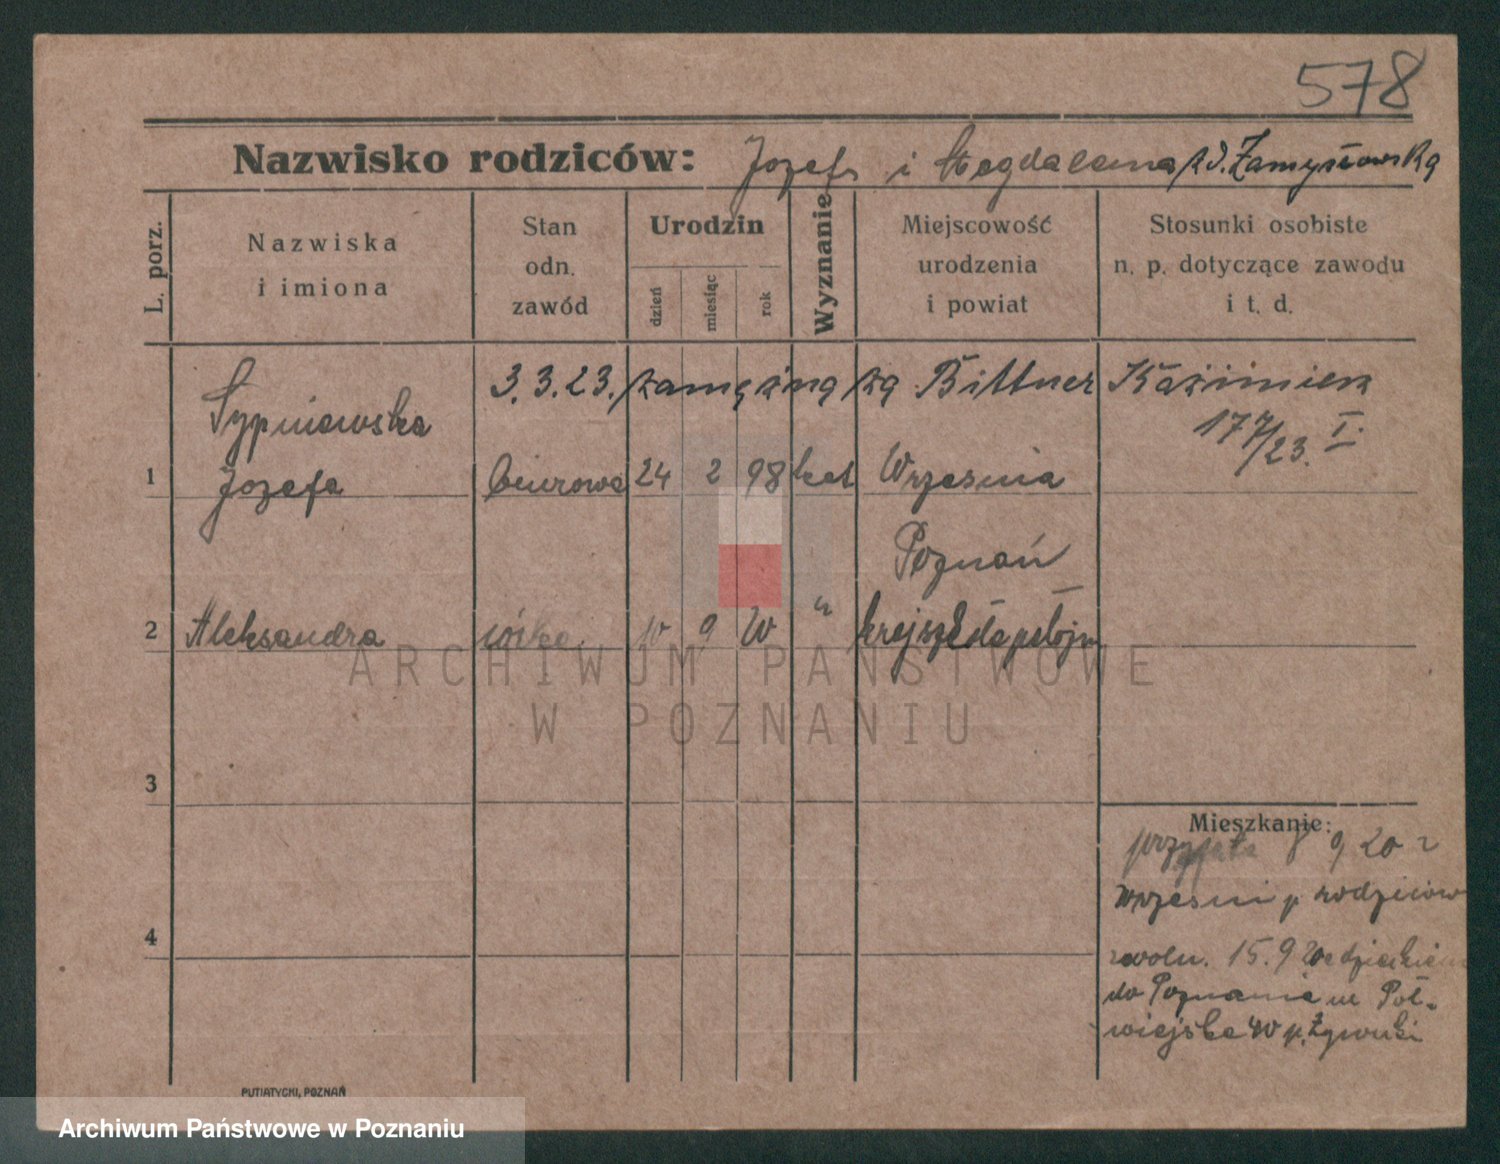 578
Nazwisko rodziców: Jozef i Magdalena zd. Zamysłowska
L. porz.
Nazwiska
i imiona
Stan
odn.
zawód
Urodzin
dzień
miesiąc
rok
Wyznanie
Miejscowość
urodzenia
i powiat
Stosunki osobiste
n. p. dotyczące zawodu
i t. d.
3.3.23. zamężna za Bittner Kazimierz
Sypniewska
17 7/23. I.
1 Jozefa biurowa 24 2 98 kat Wrzesnia
Poznań
2 Aleksandra córka 10 9 20 "
ARCHIWUM PAŃSTWOWE
W POZNANIU
3
Mieszkanie:
8 9 20 r
Wrzesni p rodziców
4
zwoln. 15.9 20
do Poznania ul Pół-
wiejska 40 p.
PUTIATYCKI, POZNAŃ
Archiwum Państwowe w Poznaniu